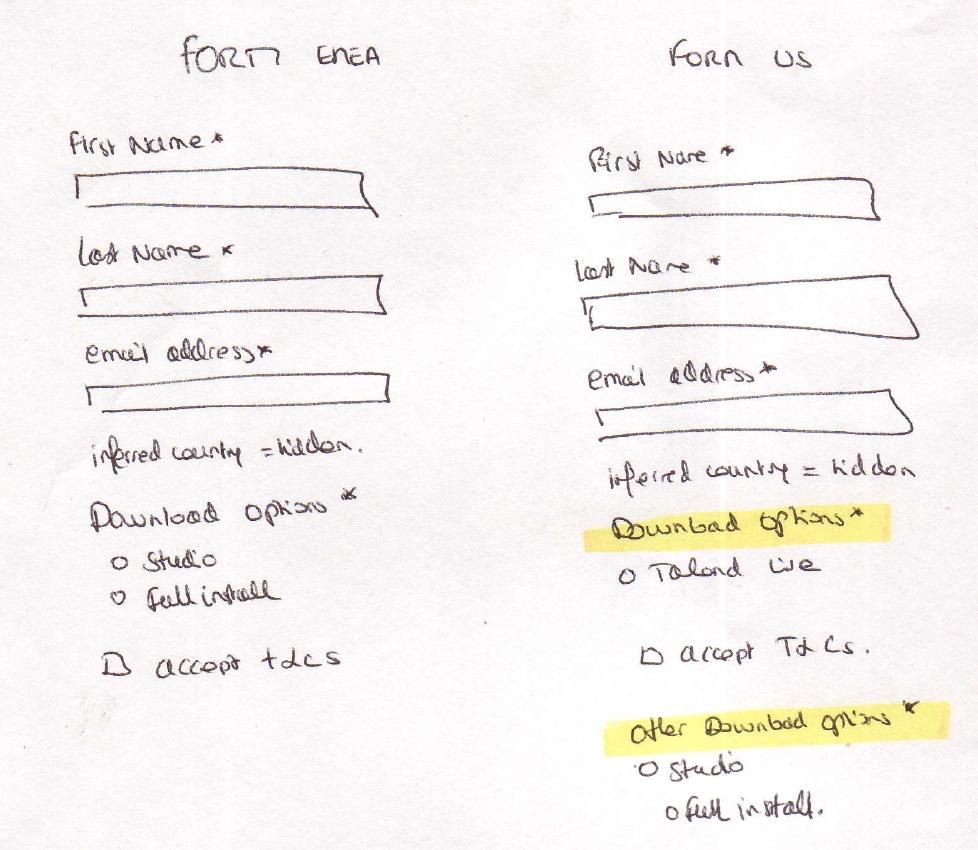 FORM EMEA
First Name *
Last Name *
email address *
inferred country = hidden.
Download options *
Studio
Full install
accept t&cs
FORM US
First Name *
Last Name *
email address *
inferred country = hidden
Download options *
Talend Live
accept T&Cs.
Other Download options *
Studio
Full install.